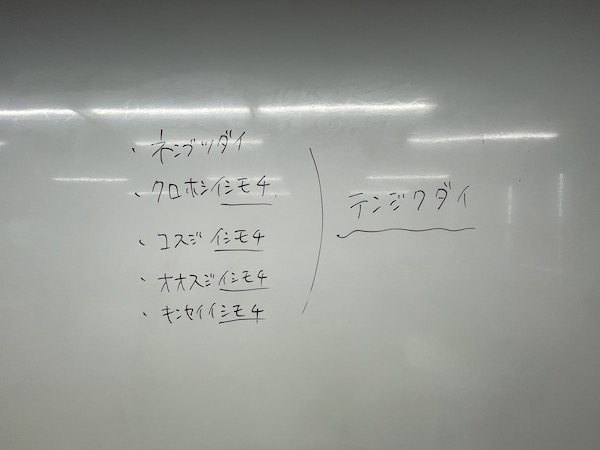 ・ネンブツダイ
・クロホシイシモチ
・コスジイシモチ
・オオスジイシモチ
・キンセイイシモチ
テンジクダイ